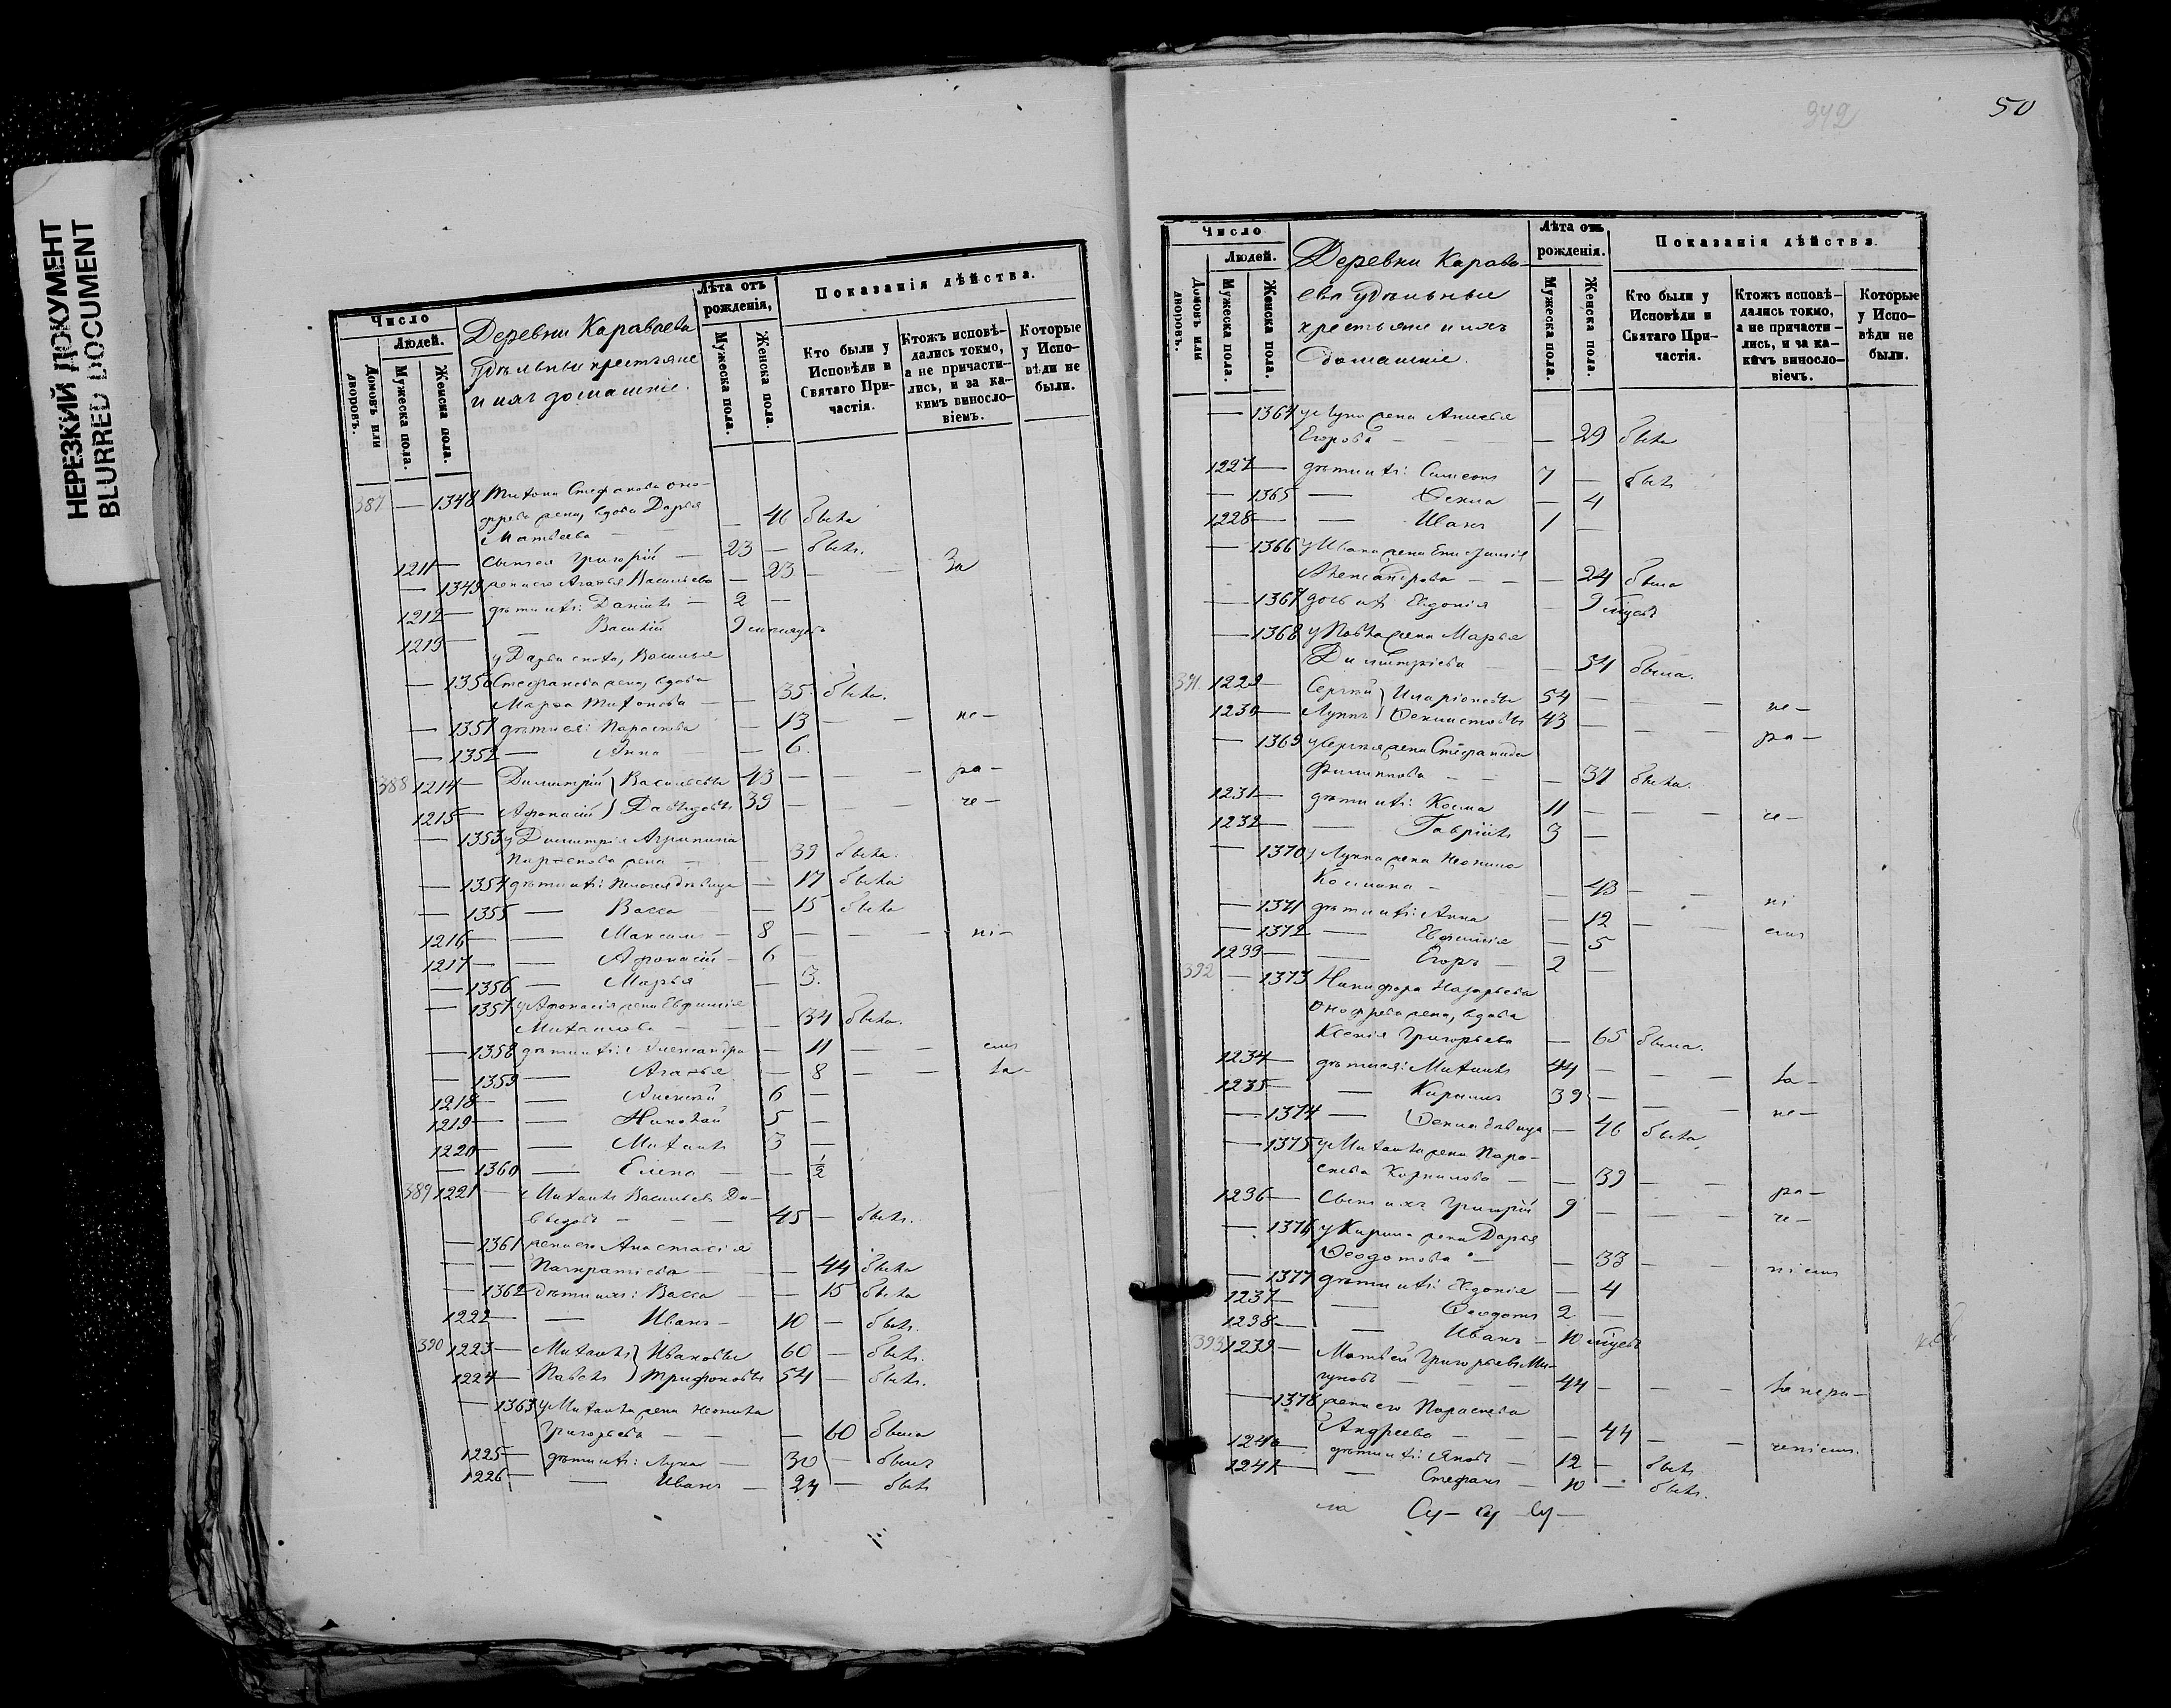 НЕРЕЗКИЙ ДОКУМЕНТ
BLURRED DOCUMENT
Число
Людей.
Домовъ или дворовъ.
Мужеска пола.
Женска пола.
Деревни Караваева
Удѣльные крестьяне
и ихъ домашніе.
Лѣта отъ рожденія,
Мужеска пола.
Женска пола.
Показанія дѣйства.
Кто были у Исповѣди и Святаго Причастія.
Ктожъ исповѣдались токмо, а не причастились, и за какимъ винословіемъ.
Которые у Исповѣди не были.
387 — 1348 Титова Стефанова Оно-
фрева жена, вдова Дарья
Матвѣева — — 46 была
1211 — сынъ ея Григорій — 23 — былъ.
— 1349 жена его Агафья Васильева — 23 — — За
1212 — дѣти ихъ: Даніилъ — 2 —
1213 — — Василій 9 месяцовъ
у Дарьи сноха, Василья
— 1350 Стефанова жена, вдова
Марѳа Титонова — — 35 была.
— 1351 дѣти ея: Параскева — 13 — — не —
— 1352 — Анна — 6.
388 1214 — Димитрій } Васильевы 43 — — — ра —
1215 — Афонасій } Давыдовы 39 — — — че —
— 1353 у Димитрія Агрипина
жена — — 39 была.
— 1354 дѣти ихъ: Пелагея дѣвица — 17 была
— 1355 — Васса — 15 была
1216 — — Максимъ — 8 — — — ні —
1217 — — Афонасій — 6 —
— 1356 — Марья — 3.
— 1357 у Афонасія жена Евфимія
Михаилова — — 34 была.
— 1358 дѣти ихъ: Александра — 11 — — емъ
— 1359 — Агафья — 8 — — за —
1218 — — Алексѣй 6 —
1219 — — Николай 5 —
1220 — — Михаилъ 3 —
— 1360 — Елена — — ½
389 1221 — Михаилъ Васильевъ Да-
выдовъ — — — 45 — былъ.
— 1361 жена его Анастасія
Панкратіева — — 44 была
— 1362 дѣти ихъ: Васса — — 15 была
1222 — — Иванъ — 10 — былъ.
390 1223 — Михаилъ } Ивановы 60 — былъ.
1224 — Павелъ } Трифоновы 54 — былъ.
— 1363 у Михаила жена Неонила
Григорьева — — — 60 была
1225 — дѣти ихъ: Лука — 30 — былъ
1226 — — Иванъ — 24 — былъ
342
50
Число
Людей.
Домовъ или дворовъ.
Мужеска пола.
Женска пола.
Деревни Карава-
ева удѣльные
крестьяне и ихъ
домашніе.
Лѣта отъ рожденія.
Мужеска пола.
Женска пола.
Показанія дѣйства.
Кто были у Исповѣди и Святаго Причастія.
Ктожъ исповѣдались токмо, а не причастились, и за какимъ винословіемъ.
Которые у Исповѣди не были.
— 1364 у Луки жена Анисья
Егорова — — 29 была
1227 — дѣти ихъ: Симеонъ 7 — былъ
— 1365 — Ѳекла — 4
1228 — — Иванъ 1 —
— 1366 у Ивана жена Епифанія
Александрова — — — 24 была
— 1367 дочь ихъ Евдокія — 9 мѣсяцъ
— 1368 у Павла жена Марья
Димитріева — — 54 была.
391 1229 — Сергѣй } Иларіоновы 54 — — — не —
1230 — Лукиъ } Ѳеклистовы 43 — — — ра —
— 1369 у Сергѣя жена Стефанида
Филиппова — — — 37 была.
1231 — дѣти ихъ: Косма 11 — — — че —
1232 — — Гавріилъ 3 —
— 1370 у Лукиа жена Неонила
Космина — — 43 — — ні
— 1371 дѣти ихъ: Анна — 12 — — емъ
— 1372 — Евфимія — 5
1233 — — Егоръ — 2 —
392 — 1373 Никифора Назарьева
Онофрева жена, вдова
Ксенія Григорьева — 65 была.
1234 — дѣти ея: Михаилъ 44 — — — за —
1235 — — Кирилъ 39 — — — не —
— 1374 — Ѳекла дѣвица — 46 была
— 1375 у Михаила жена Пара-
скева Корнилова — — 39 — — ра —
1236 — Сынъ ихъ Григорій 9 — — — че —
— 1376 у Кирила жена Дарья
Ѳеодотова — — 33 — — ніемъ
— 1377 дѣти ихъ: Евдокія — 4
1237 — — Ѳеодотъ 2 —
1238 — — Иванъ — 10 мѣсяцъ
393 1239 — Матвѣй Григорьевъ Ми-
гуновъ — — — 44 — — — За нера —
— 1378 жена его Параскева
Андреева — — — 44 — — ченіемъ.
1240 — дѣти ихъ: Яковъ — 12 — былъ
1241 — — Стефанъ — 10 — былъ.